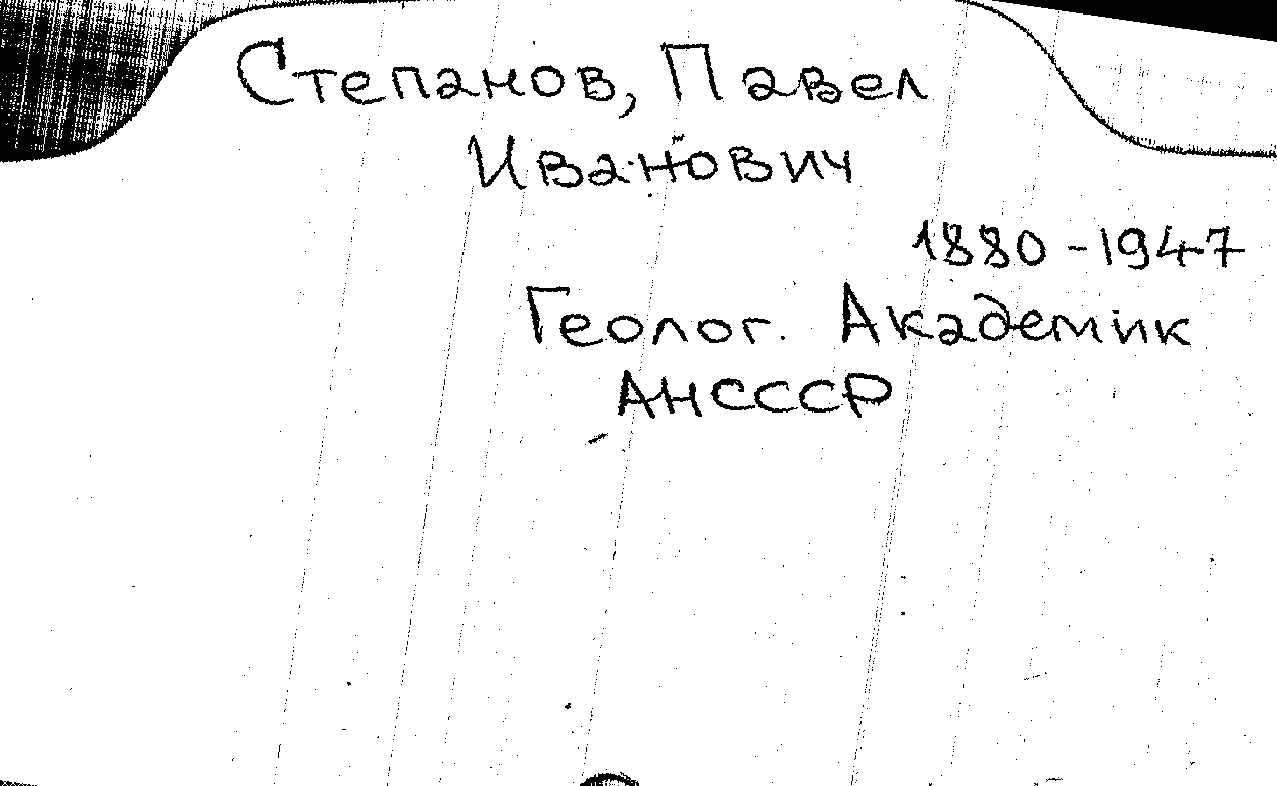 Степанов, Павел
Иванович
1880-1947
Геолог. Академик
АНСССР